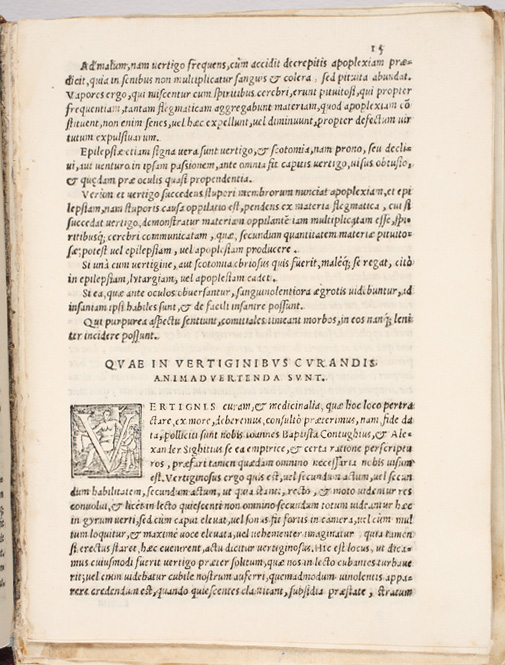 15
Ad malum, nam uertigo frequens, cùm accidit decrepitis apoplexiam præ=
dicit, quia in senibus non multiplicatur sanguis & colera, sed pituita abundat.
Vapores ergo, qui miscentur cum spiritibus cerebri, erunt pituitosi, qui propter
frequentiam, tantam flegmaticam aggregabunt materiam, quod apoplexiam cõ
stituent, non enim senes, uel hæc expellunt, uel diminuunt, propter defectum uir
tutum expulsiuarum.
Epilepsiæ etiam signa uera sunt uertigo, & scotomia, nam prono, seu decli=
ui, aut uenturo in ipsam passionem, ante omnia fit capitis uertigo, uisus obtusio,
& quędam præ oculis quasi propendentia.
Verùm et uertigo succedens stupori membrorum nunciat apoplexiam, et epi
lepsiam, nam stuporis causa oppilatio est, pendens ex materia flegmatica, cui si
succedat uertigo, demonstratur materiam oppilantē iam multiplicatam esse, spi=
ritibusq; cerebri communicatam, quæ, secundum quantitatem materiæ pituito=
sæ, potest uel epilepsiam, uel apoplesiam producere.
Si unà cum uertigine, aut scotomia ebriosus quis fuerit, maleq; se regat, citò
in epilepsiam, lytargiam, uel apoplesiam cadet.
Si ea, quæ ante oculos obuersantur, sanguinolentiora ægrotis uidibuntur, ad
insaniam ipsi habiles sunt, & de facili insanire possunt.
Qui purpurea aspectu sentiunt, comitiales timeant morbos, in eos nanq; leni
ter incidere possunt.
QVAE IN VERTIGINIBVS CVRANDIS
ANIMADVERTENDA SVNT.
VERTIGNES curam, & medicinalia, quæ hoc loco pertra
ctare, ex more, deberemus, consultò præterimus, nam, fide da
ta, polliciti sunt nobis Ioannes Baptista Contughius, & Ale=
xander Sighitius se ea empirice, & certa ratione perscriptu
ros, præfari tamen quædam omnino necessaria nobis uisum
est. Vertiginosus ergo quis est, uel secundum actum, uel secun
dum habilitatem, secundum actum, ut quia stanti, recto, & moto uidentur res
conuolui, & licèt in lecto quiescenti non omnino secundum totum uideantur hæc
in gyrum uerti, sed cùm caput eleuat, uel sonus fit fortis in camera, uel cùm mul
tum loquitur, & maximè uoce eleuata, uel uehementer imaginatur, quia tamen
si erectus staret, hæc euenerent, actu dicitur uertiginosus. Hic est locus, ut dica=
mus cuiusmodi fuerit uertigo præter solitum, quæ nos in lecto cubantes turbaue
rit; uel enim uidebatur cubile nostrum auferri, quemadmodum uinolentis appa=
rere credendum est, quando quiescentes clamitant, subsidia præstate, stratum